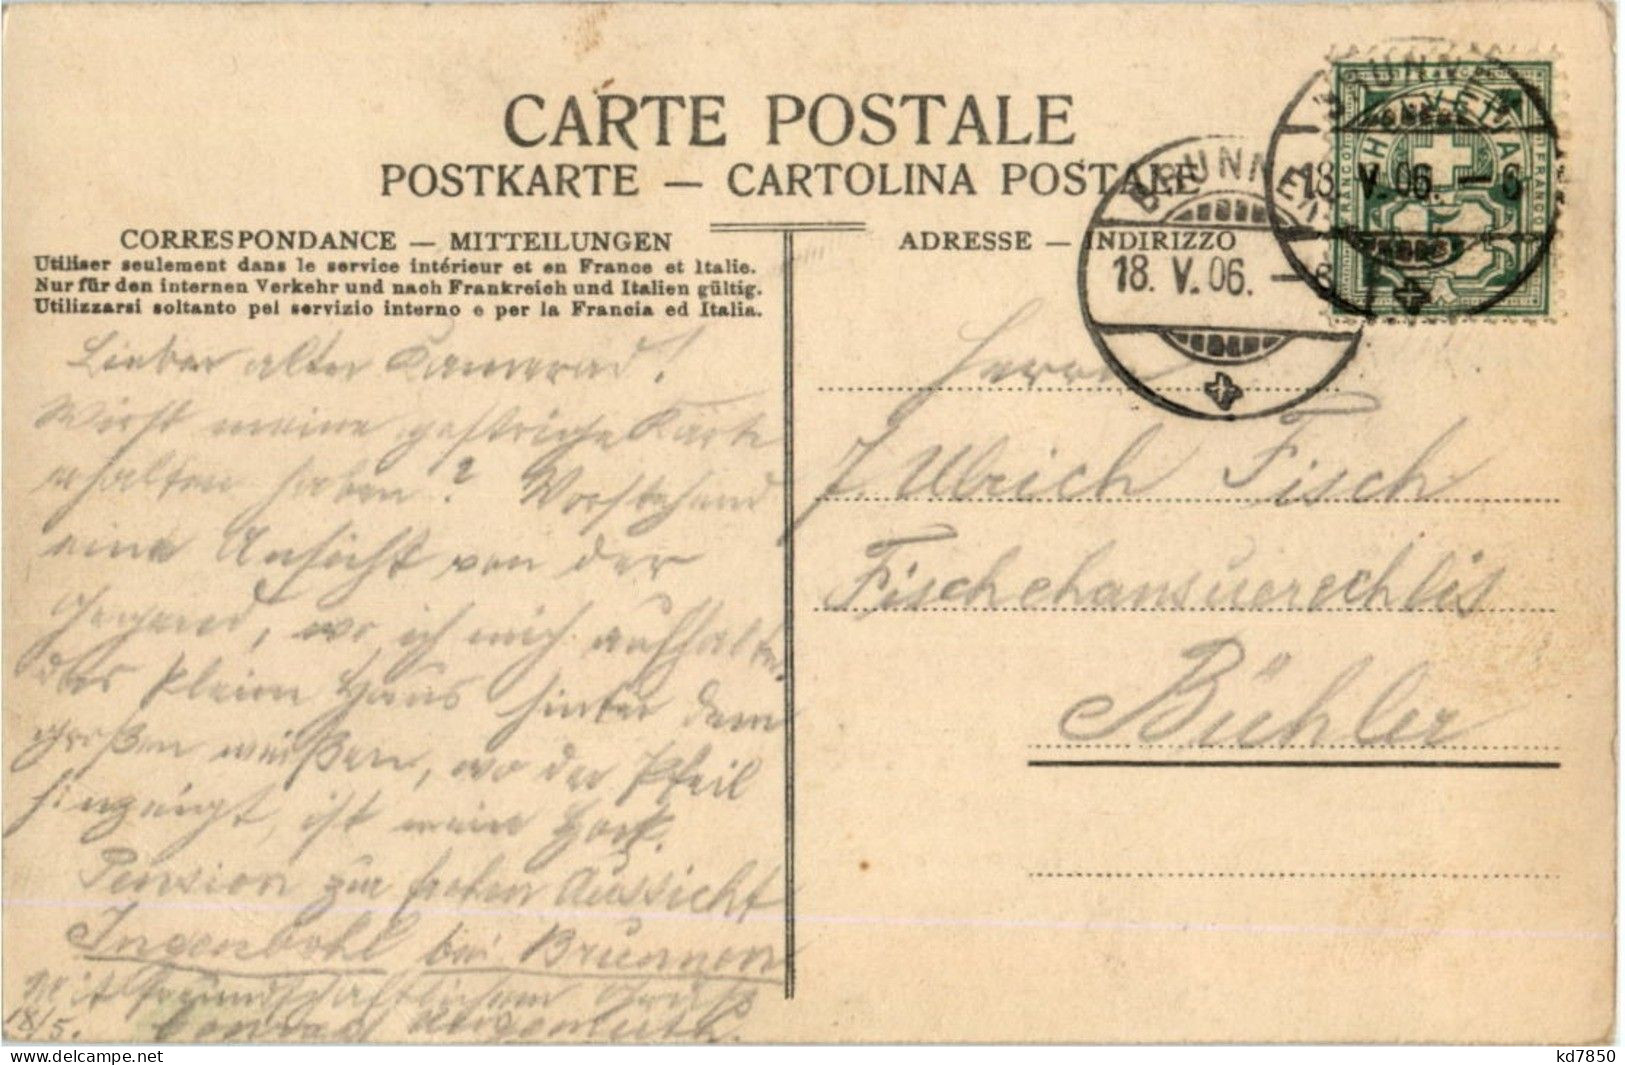 CARTE POSTALE
POSTKARTE — CARTOLINA POSTALE
CORRESPONDANCE — MITTEILUNGEN
Utiliser seulement dans le service intérieur et en France et Italie.
Nur für den internen Verkehr und nach Frankreich und Italien gültig.
Utilizzarsi soltanto pel servizio interno e per la Francia ed Italia.
Lieber alter Kamerad!
Wirst meine gestrige Karte
erhalten haben? Vorstehend
eine Ansicht von der
Gegend, wo ich mich aufhalte.
das kleine Haus hinter dem
großen weißen, wo der Pfeil
hinzeigt, ist mein Hock.
Pension zur frohen Aussicht
Ingenbohl bei Brunnen
Mit freundschaftlichem Gruß
18/5. Conrad
ADRESSE — INDIRIZZO
BRUNNEN
18. V. 06. – 6
BRUNNEN
18. V. 06. – 6
HELVETIA
FRANCO
FRANCO
5
Herrn
J. Ulrich Fisch
Bühler
delcampe.net
kd7850